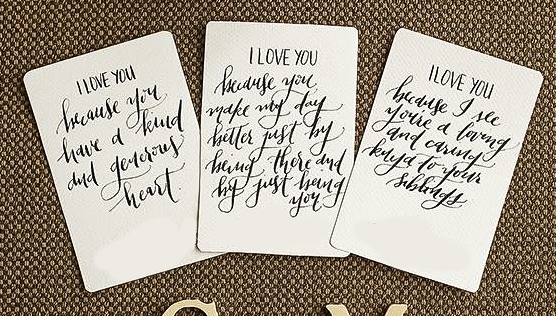 I LOVE YOU
because you
have a kind
and generous
heart
I LOVE YOU
because you
make my day
better just by
being there and
by just being
you
I LOVE YOU
because I see
you're a loving
and caring
kuya to your
siblings